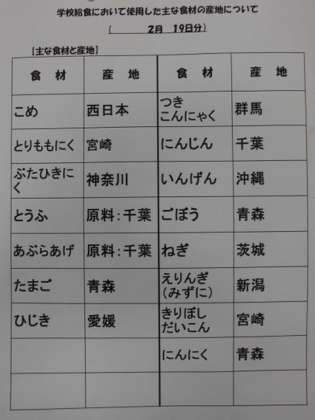 学校給食において使用した主な食材の産地について
( 2月 19日分)
[主な食材と産地]
食 材 産 地 食 材 産 地
こめ 西日本 つきこんにゃく 群馬
とりももにく 宮崎 にんじん 千葉
ぶたひきにく 神奈川 いんげん 沖縄
とうふ 原料：千葉 ごぼう 青森
あぶらあげ 原料：千葉 ねぎ 茨城
たまご 青森 えりんぎ(みずに) 新潟
ひじき 愛媛 きりぼしだいこん 宮崎
にんにく 青森